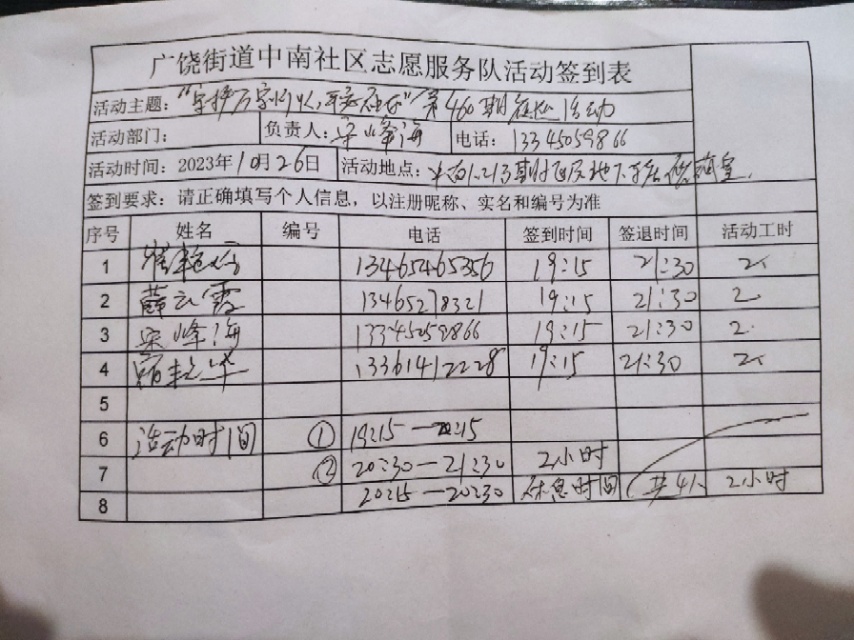 广饶街道中南社区志愿服务队活动签到表
活动主题："守护万家灯火,平安社区"第460期夜巡活动
活动部门： 负责人：宋峰海 电话：13345059866
活动时间：2023年10月26日 活动地点：中南1.2.13期小区及地下
签到要求：请正确填写个人信息，以注册昵称、实名和编号为准
序号 姓名 编号 电话 签到时间 签退时间 活动工时
1 13465465356 19:15 21:30 2
2 薛云霞 13465278321 19:15 21:30 2
3 宋峰海 13345059866 19:15 21:30 2
4 13361412228 19:15 21:30 2
5
6 活动时间 ① 19:15—20:15
7 ② 20:30—21:30 2小时
8 20:15—20:30 休息时间 共4人 2小时